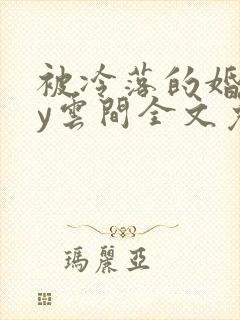 被冷落的婚
y雲間全文
瑪麗亞